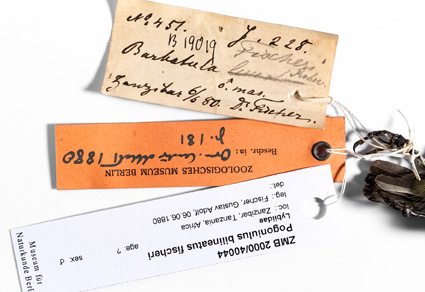 No. 451. J. 228.
B 19019 Fischeri
Barbatula
Zanzibar 6/6 80. Dr. Fischer.
ZOOLOGISCHES MUSEUM BERLIN
Beschr. in:
1880
p. 181
ZMB 2000/40044
Pogoniulus bilineatus fischeri
Lybiidae
loc.: Zanzibar, Tanzania, Africa
leg.: Fischer, Gustav Adolf, 06.06.1880
det.:
age: ?
sex: ♂
Museum für
Naturkunde Berlin